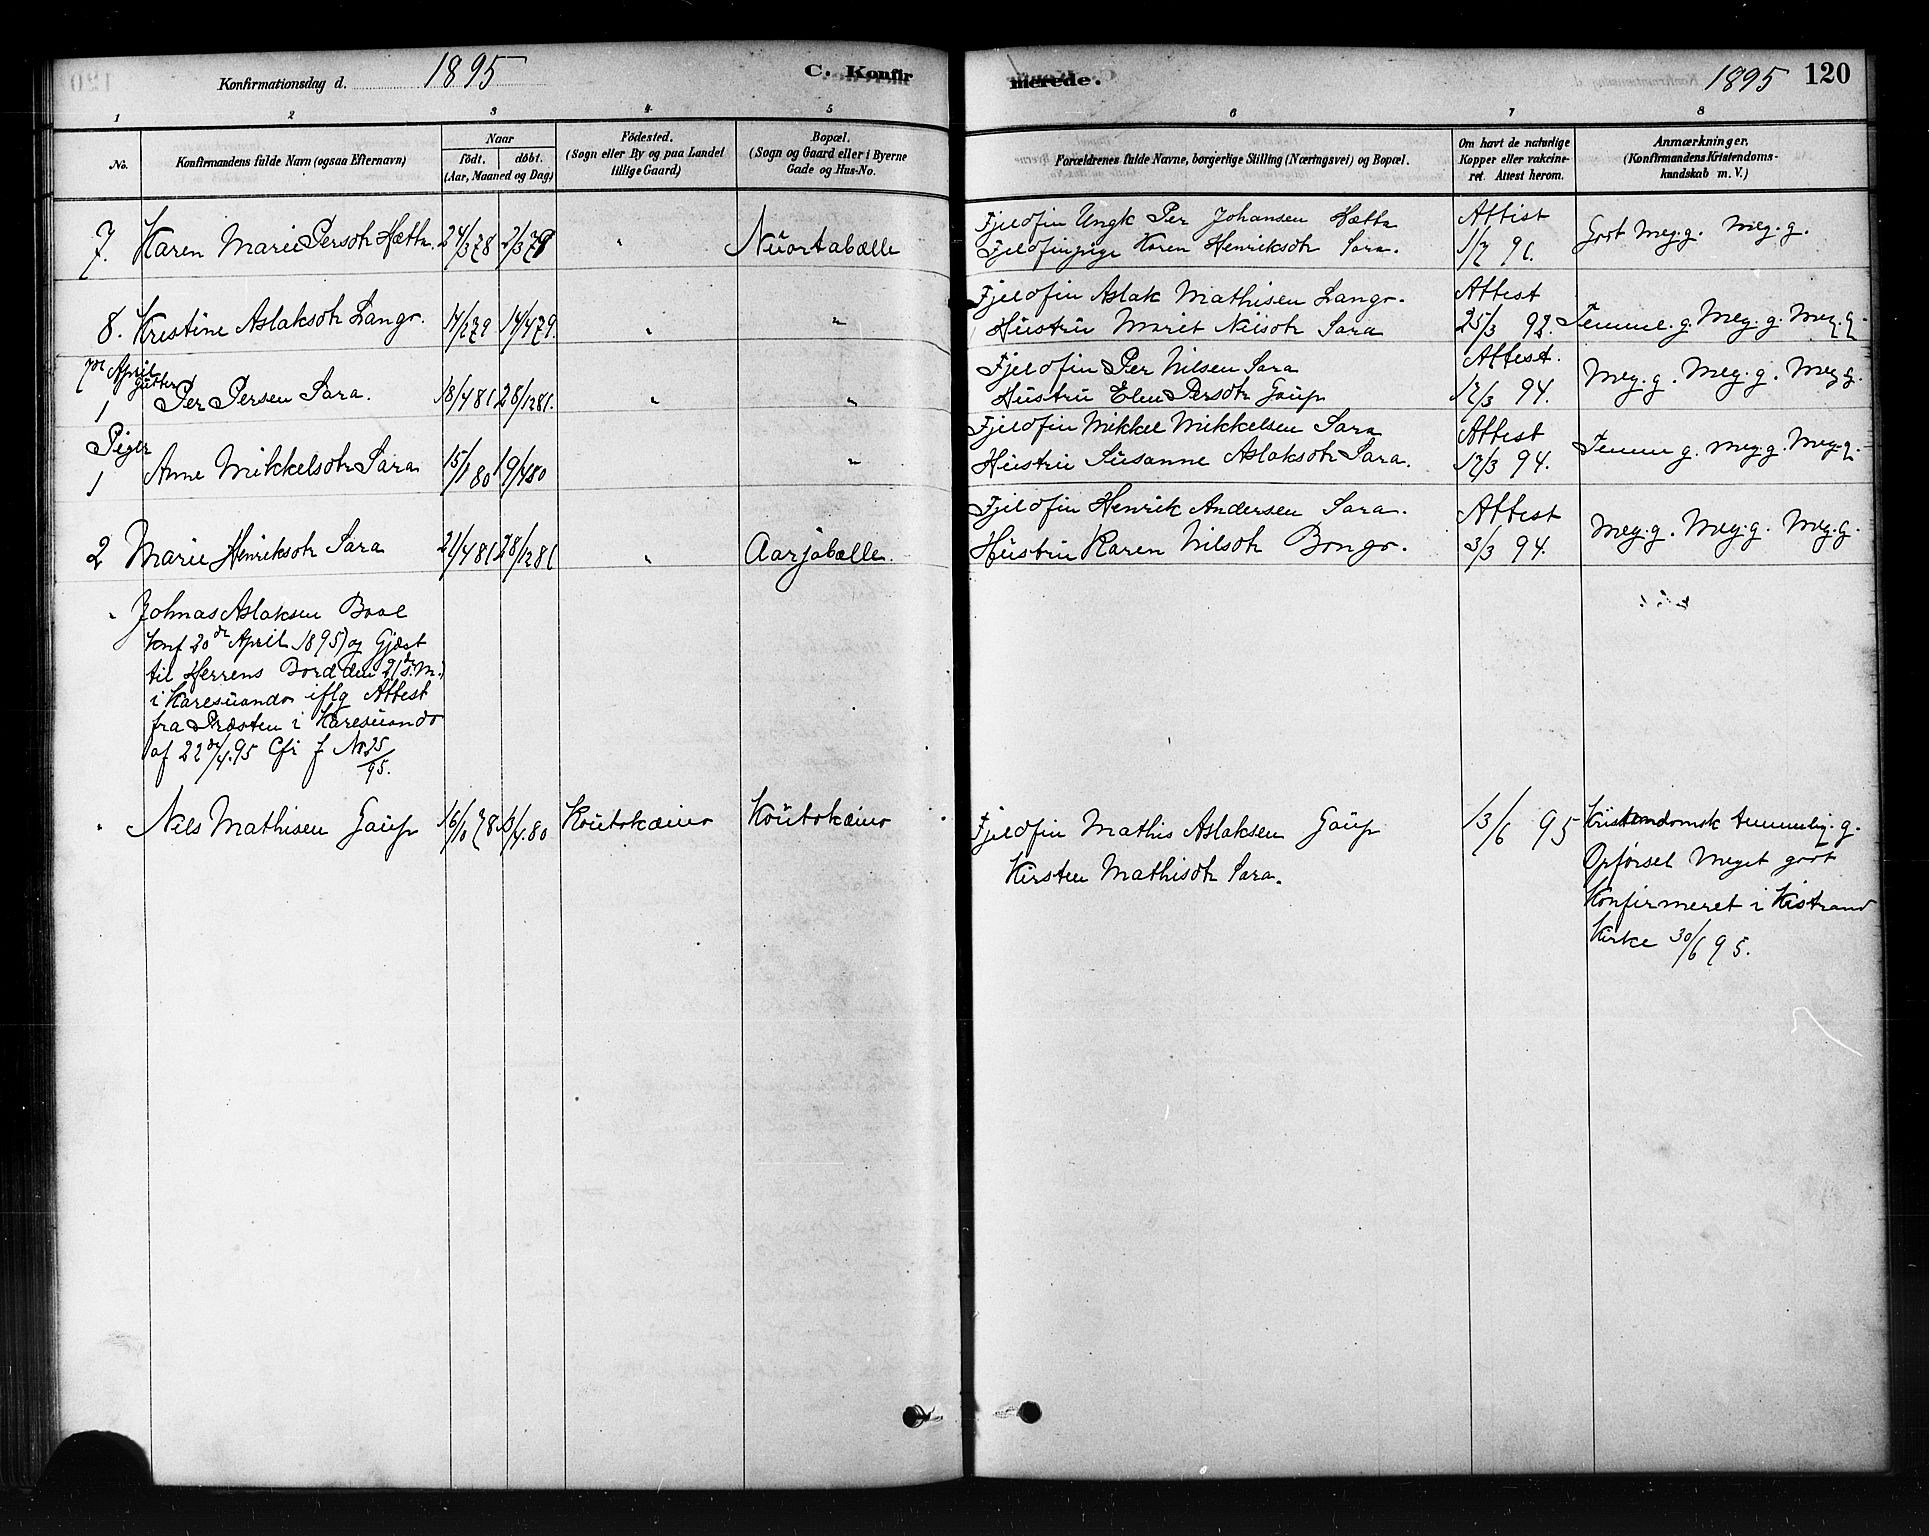 Konfirmationsdag d. 1895 C. Konfir
merede. 1895 120
1 2 3 4 5 6 7 8
No.
Konfirmandens fulde Navn (ogsaa Efternavn)
Naar
födt. döbt.
(Aar, Maaned og Dag)
Födested.
(Sogn eller By og paa Landet
tillige Gaard)
Bopæl.
(Sogn og Gaard eller i Byerne
Gade og Hus-No.
Forældrenes fulde Navne, borgerlige Stilling (Næringsvei) og Bopæl.
Om havt de naturlige
Kopper eller vakcine-
ret. Attest herom.
Anmærkninger.
(Konfirmandens Kristendoms-
kundskab m. V.)
7. Karen Marie Persdtr Hætta 24/3 78 2/3 79 " Nuortabælle
Fjeldfin Ungk Per Johansen Hætta Attest
Fjeldfinpige Karen Henriksdtr Sara. 1/7 91. Godt Meg. g. Meg. g.
8. Kristine Aslaksdtr Lango. 14/2 79 14/4 79. " "
Fjeldfin Aslak Mathisen Lango. Attest
Hustru Marit Nilsdtr Sara 25/3 92. Temmel. g. Meg. g. Meg. g.
7de April
Gutter
1 Per Persen Sara. 18/4 81 28/12 81. " "
Fjeldfin Per Nilsen Sara Attest.
Hustru Elen Persdtr Gaup 12/3 94. Meg. g. Meg. g. Meg. g.
Piger
1 Anne Mikkelsdtr Sara 15/1 80 19/4 80 "
Fjeldfin Mikkel Mikkelsen Sara Attest
Hustru Susanne Aslaksdtr Sara. 12/3 94. Temm g. Meg. g. Meg. g.
2 Marie Henriksdtr Sara 21/4 81 28/12 81 " Aarjabælle.
Fjeldfin Henrik Andersen Sara. Attest
Hustru Karen Nilsdtr Bongo. 3/3 94. Meg. g. Meg. g. Meg. g.
" Johnas Aslaksen Baal
konf 20de April 1895) og Gjæst
til Herrens Bord den 21de s. M.
i Karesuando iflg Attest
fra Præsten i Karesuando
af 22de/4 95 Cfr f No 25/95.
" Nils Mathisen Gaup 16/10 78 /4 80 Koutokæino Koutokæino
Fjeldfin Mathis Aslaksen Gaup 13/6 95 Kristendomsk temmelig. g.
Kirsten Mathisdtr Sara. Opførsel Meget godt
Konfirmeret i Kistrand
Kirke 30/6 95.